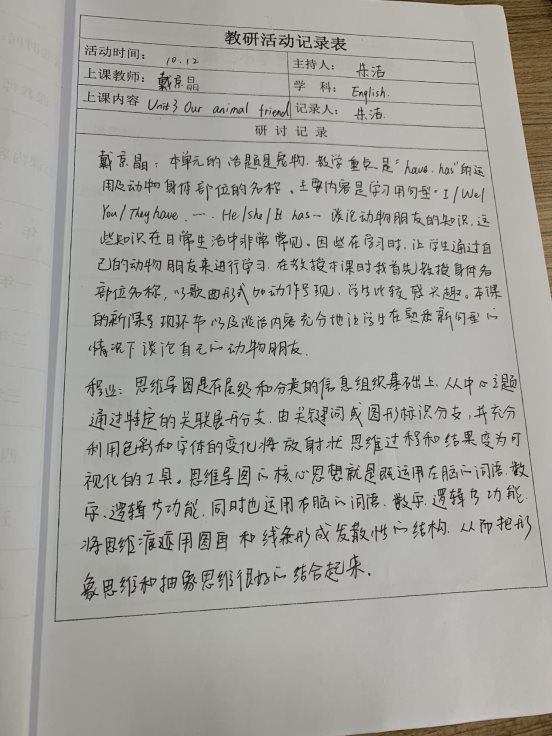 教研活动记录表
活动时间： 10.12 主持人： 朱洁
上课教师： 戴京晶 学 科： English.
上课内容 Unit 3 Our animal friend 记录人： 朱洁.
研 讨 记 录
戴京晶：本单元的话题是宠物．教学重点是“have．has”的运
用及动物身体部位的名称．主要内容是学习用句型“I/We/
You/They have．一．He/she/It has一 谈论动物朋友的知识．这
些知识在日常生活中非常常见。因此在学习时，让学生通过自
己的动物朋友来进行学习．在教授本课时我首先教授身体各
部位名称，以歌曲形式加动作呈现，学生比较感兴趣。本课
的新课呈现环节以及谈话内容充分地让学生在熟悉新句型的
情况下谈论自己的动物朋友．
程：思维导图是在层级和分类的信息组织基础上．从中心主题
通过特定的关联展开分支．由关键词或图形标识分支，并充分
利用色彩和字体的变化将放射状思维过程和结果变为可
视化的工具。思维导图的核心思想就是既运用左脑的词语．数
字．逻辑等功能．同时也运用右脑的词语．数字．逻辑等功能．
将思维痕迹用图画和线条形成发散性的结构．从而把形
象思维和抽象思维很好的结合起来．